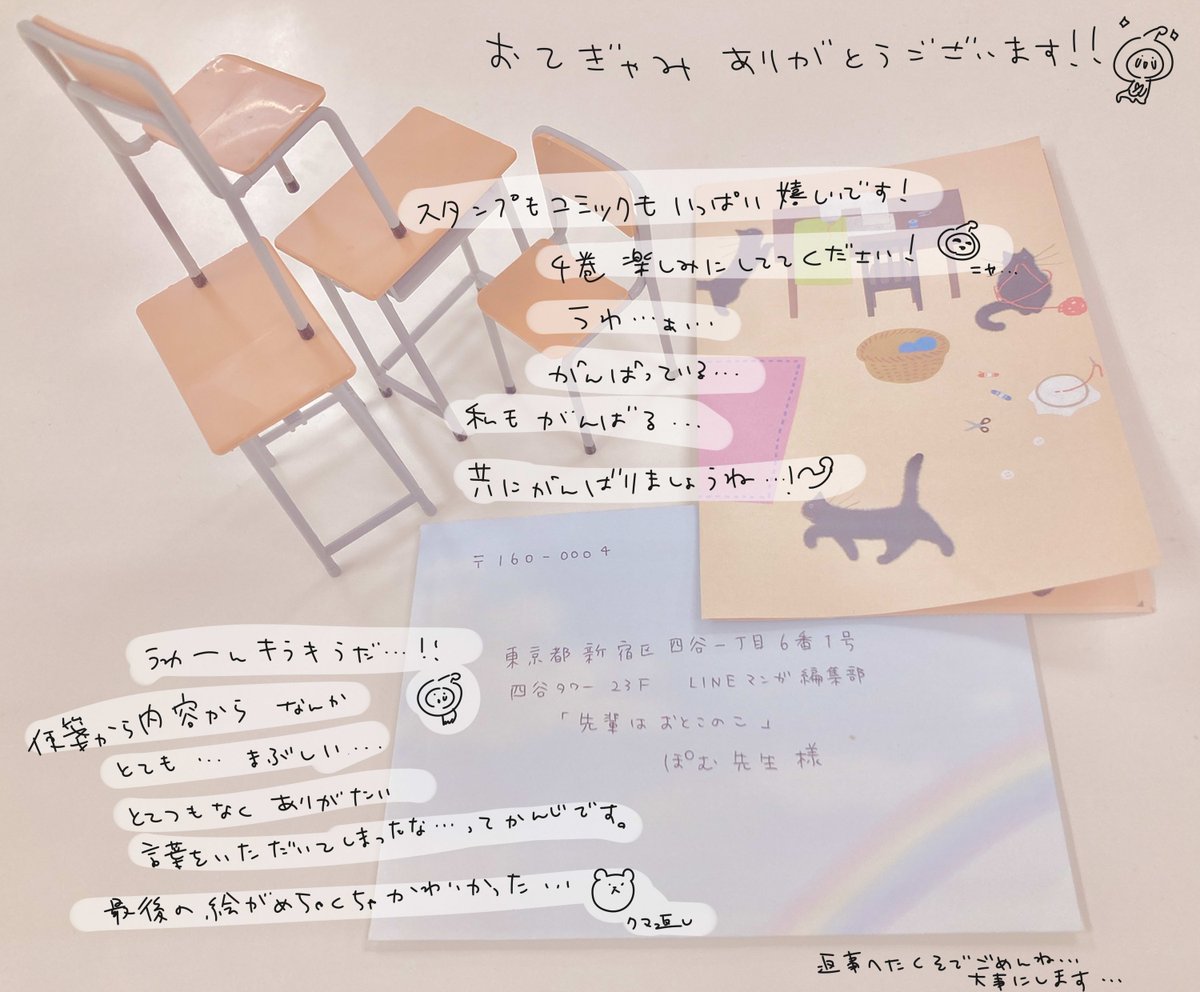 おてぎゃみ ありがとうございます!!
スタンプもコミックも いっぱい 嬉しいです!
4巻 楽しみにしててください!
ニャ…
うわ…ぁぃ…
がんばっている…
私も がんばる…
共にがんばりましょうね…!
〒160-0004
東京都新宿区四谷一丁目6番1号
四谷タワー 23F LINEマンガ編集部
「先輩はおとこのこ」
ぽむ先生様
うわーんキラキラだ…!!
便箋から内容から なんか
とても… まぶしい…
とてつもなく ありがたい
言葉をいただいてしまったな…ってかんじです。
最後の絵がめちゃくちゃかわいかった…
クマ返し
返事へたくそでごめんね…
大事にします…